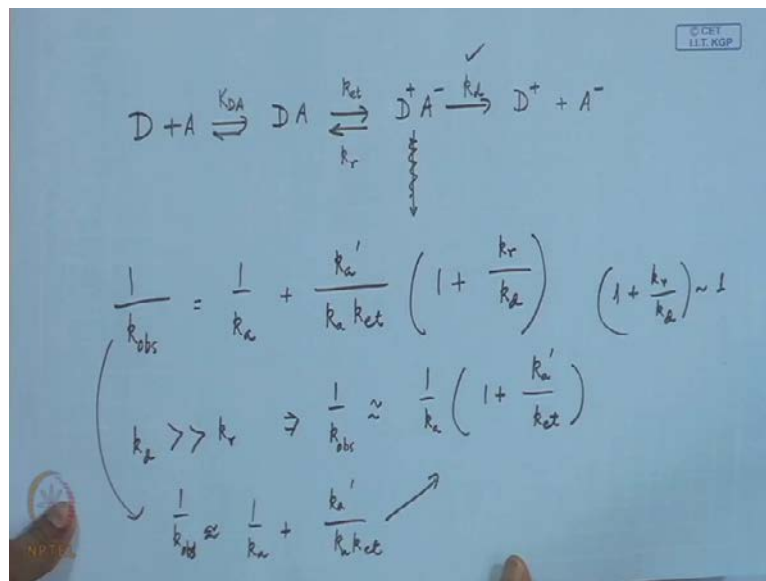 © CET
I.I.T. KGP
D + A ⇌ DA ⇌ D⁺A⁻ → D⁺ + A⁻
K_DA k_et k_d ✓
k_r
1/k_obs = 1/k_a + k_a'/(k_a k_et) (1 + k_r/k_d) (1 + k_r/k_d) ~ 1
k_d >> k_r ⇒ 1/k_obs ≈ 1/k_a (1 + k_a'/k_et)
1/k_obs ≈ 1/k_a + k_a'/(k_a k_et)
NPTEL